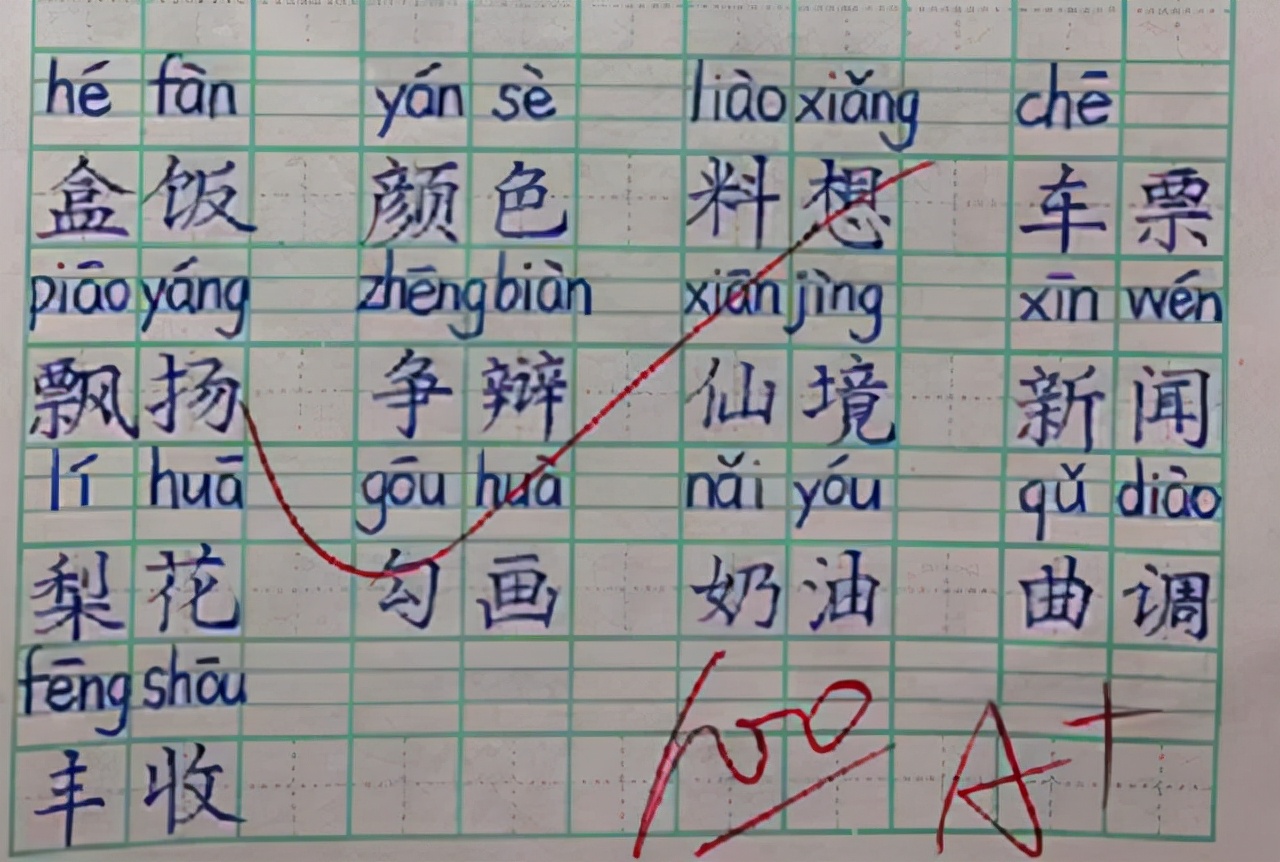 hé fàn yán sè liào xiǎng chē
盒饭 颜色 料想 车票
piāo yáng zhēng biàn xiān jìng xīn wén
飘扬 争辩 仙境 新闻
lí huā gōu huà nǎi yóu qǔ diào
梨花 勾画 奶油 曲调
fēng shōu
丰收
100 A+